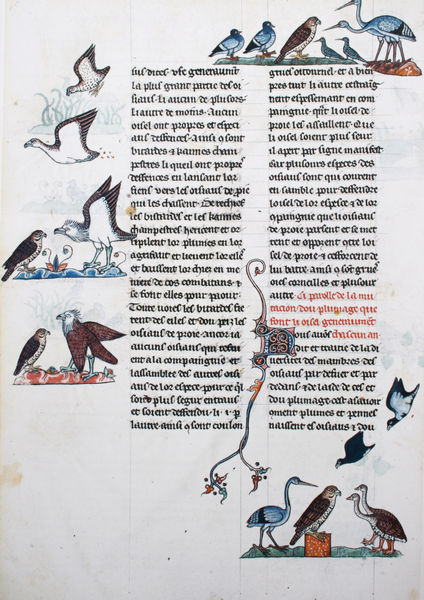 sus dites · vse generaument
la plus grant partie des oi
siaus · li aucun de plusors
li autre de moins · Aucun
oisel ont propres et especi
aus deffences · ainsi sont
bitardes et kaines cham
pestres li queil ont propres
deffences en lansant lor
siens vers les oisiaus de proie
qui les chassent · Derechief
les bistardes et les kaines
champestres hericent et
lor plumes en lor
et lievent lor elle
et baissent lor chies en me
niere de cos combatans · et
se font elles pour paour ·
Toute voies les bitardes fie
rent des eles et dou piz les
oisiaus de proie · ancors ia
aucuns oisiaus qui
ent a la compaingnie et a
lassamblee des autres oisi
aus de lor espece por ce
soient plus segur entraus
et soient deffendu · li · i · p
lautre · ainsi sont coulon
grues estornel · et a bien
pres tuit li autre
nent espessement en com
paingnie · li oisel de
proie les assaillent · Que
li oisel soient plus seur
il apert par signe manifest
Car plusours especes des
oisiaus sont qui corent
en samble por deffendre
loisel de lor espece · et de
paingnie que li oisiaus
de proie parsent · et se met
tent et opponent
sel de proie et cefforcent de
lui batre · ainsi grues
oies corneilles et plusour
autre · Si parolle de la mu
tacion dou plumage que
font li oisel generaument
Nous avons chascun an
dit et traitie de la di
versitei des mambres des
oisiaus par defuer et par
dedans · et de laide de ces · et
dou plumage est asavoir
coment plumes et pennes
naissent es oisiaus · et dou